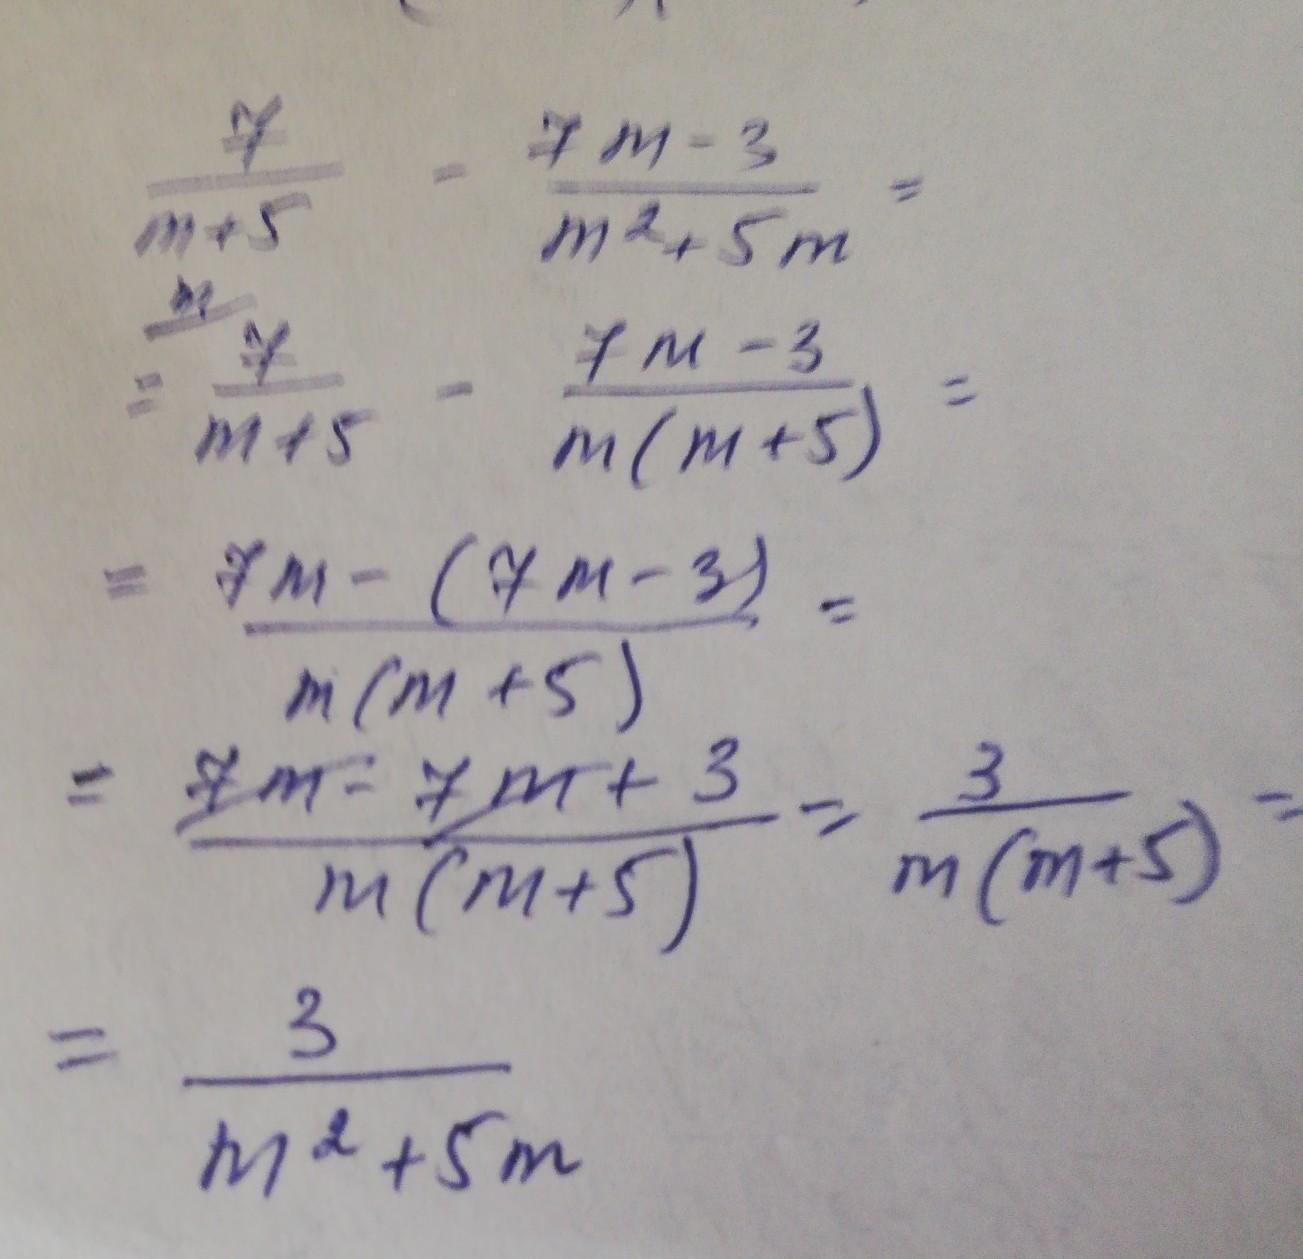 7/(m+5) - (7m-3)/(m²+5m) =
= m 7/(m+5) - (7m-3)/(m(m+5)) =
= (7m-(7m-3))/(m(m+5)) =
= (7m-7m+3)/(m(m+5)) = 3/(m(m+5)) =
= 3/(m²+5m)